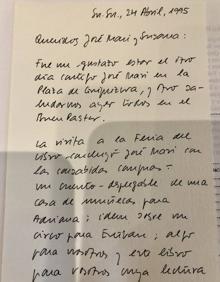 Sn. Sn., 24 Abril, 1995
Queridos José Mari y Susana:
Fue un gustato estar el otro
día contigo José Mari en la
Plaza de Gipuzkoa, y
ayer todos en el
Buen Pastor.
La visita a la Feria del
libro José Mari con
las consabidas compras =
un cuento - desplegable de una
casa de muñecas para
Adriana; idem sobre un
circo para ; algo
para vosotros y este libro
para vosotros cuya lectura